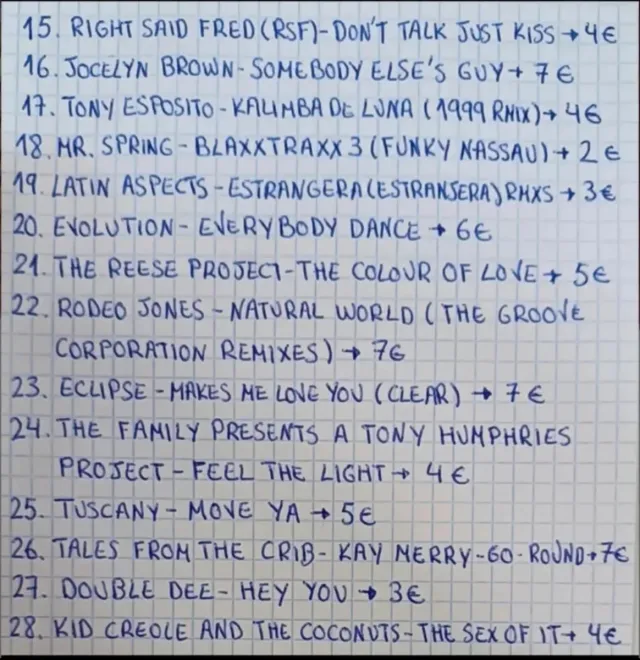 15. RIGHT SAID FRED (RSF)-DON'T TALK JUST KISS → 4€
16. JOCELYN BROWN-SOMEBODY ELSE'S GUY → 7€
17. TONY ESPOSITO-KALIMBA DE LUNA (1999 RMIX) → 4€
18. MR. SPRING-BLAXXTRAXX 3 (FUNKY NASSAU) → 2€
19. LATIN ASPECTS-ESTRANGERA (ESTRANJERA) RMXS → 3€
20. EVOLUTION-EVERYBODY DANCE → 6€
21. THE REESE PROJECT-THE COLOUR OF LOVE → 5€
22. RODEO JONES-NATURAL WORLD (THE GROOVE
CORPORATION REMIXES) → 7€
23. ECLIPSE-MAKES ME LOVE YOU (CLEAR) → 7€
24. THE FAMILY PRESENTS A TONY HUMPHRIES
PROJECT-FEEL THE LIGHT → 4€
25. TUSCANY-MOVE YA → 5€
26. TALES FROM THE CRIB-KAY MERRY-GO-ROUND → 7€
27. DOUBLE DEE-HEY YOU → 3€
28. KID CREOLE AND THE COCONUTS-THE SEX OF IT → 4€